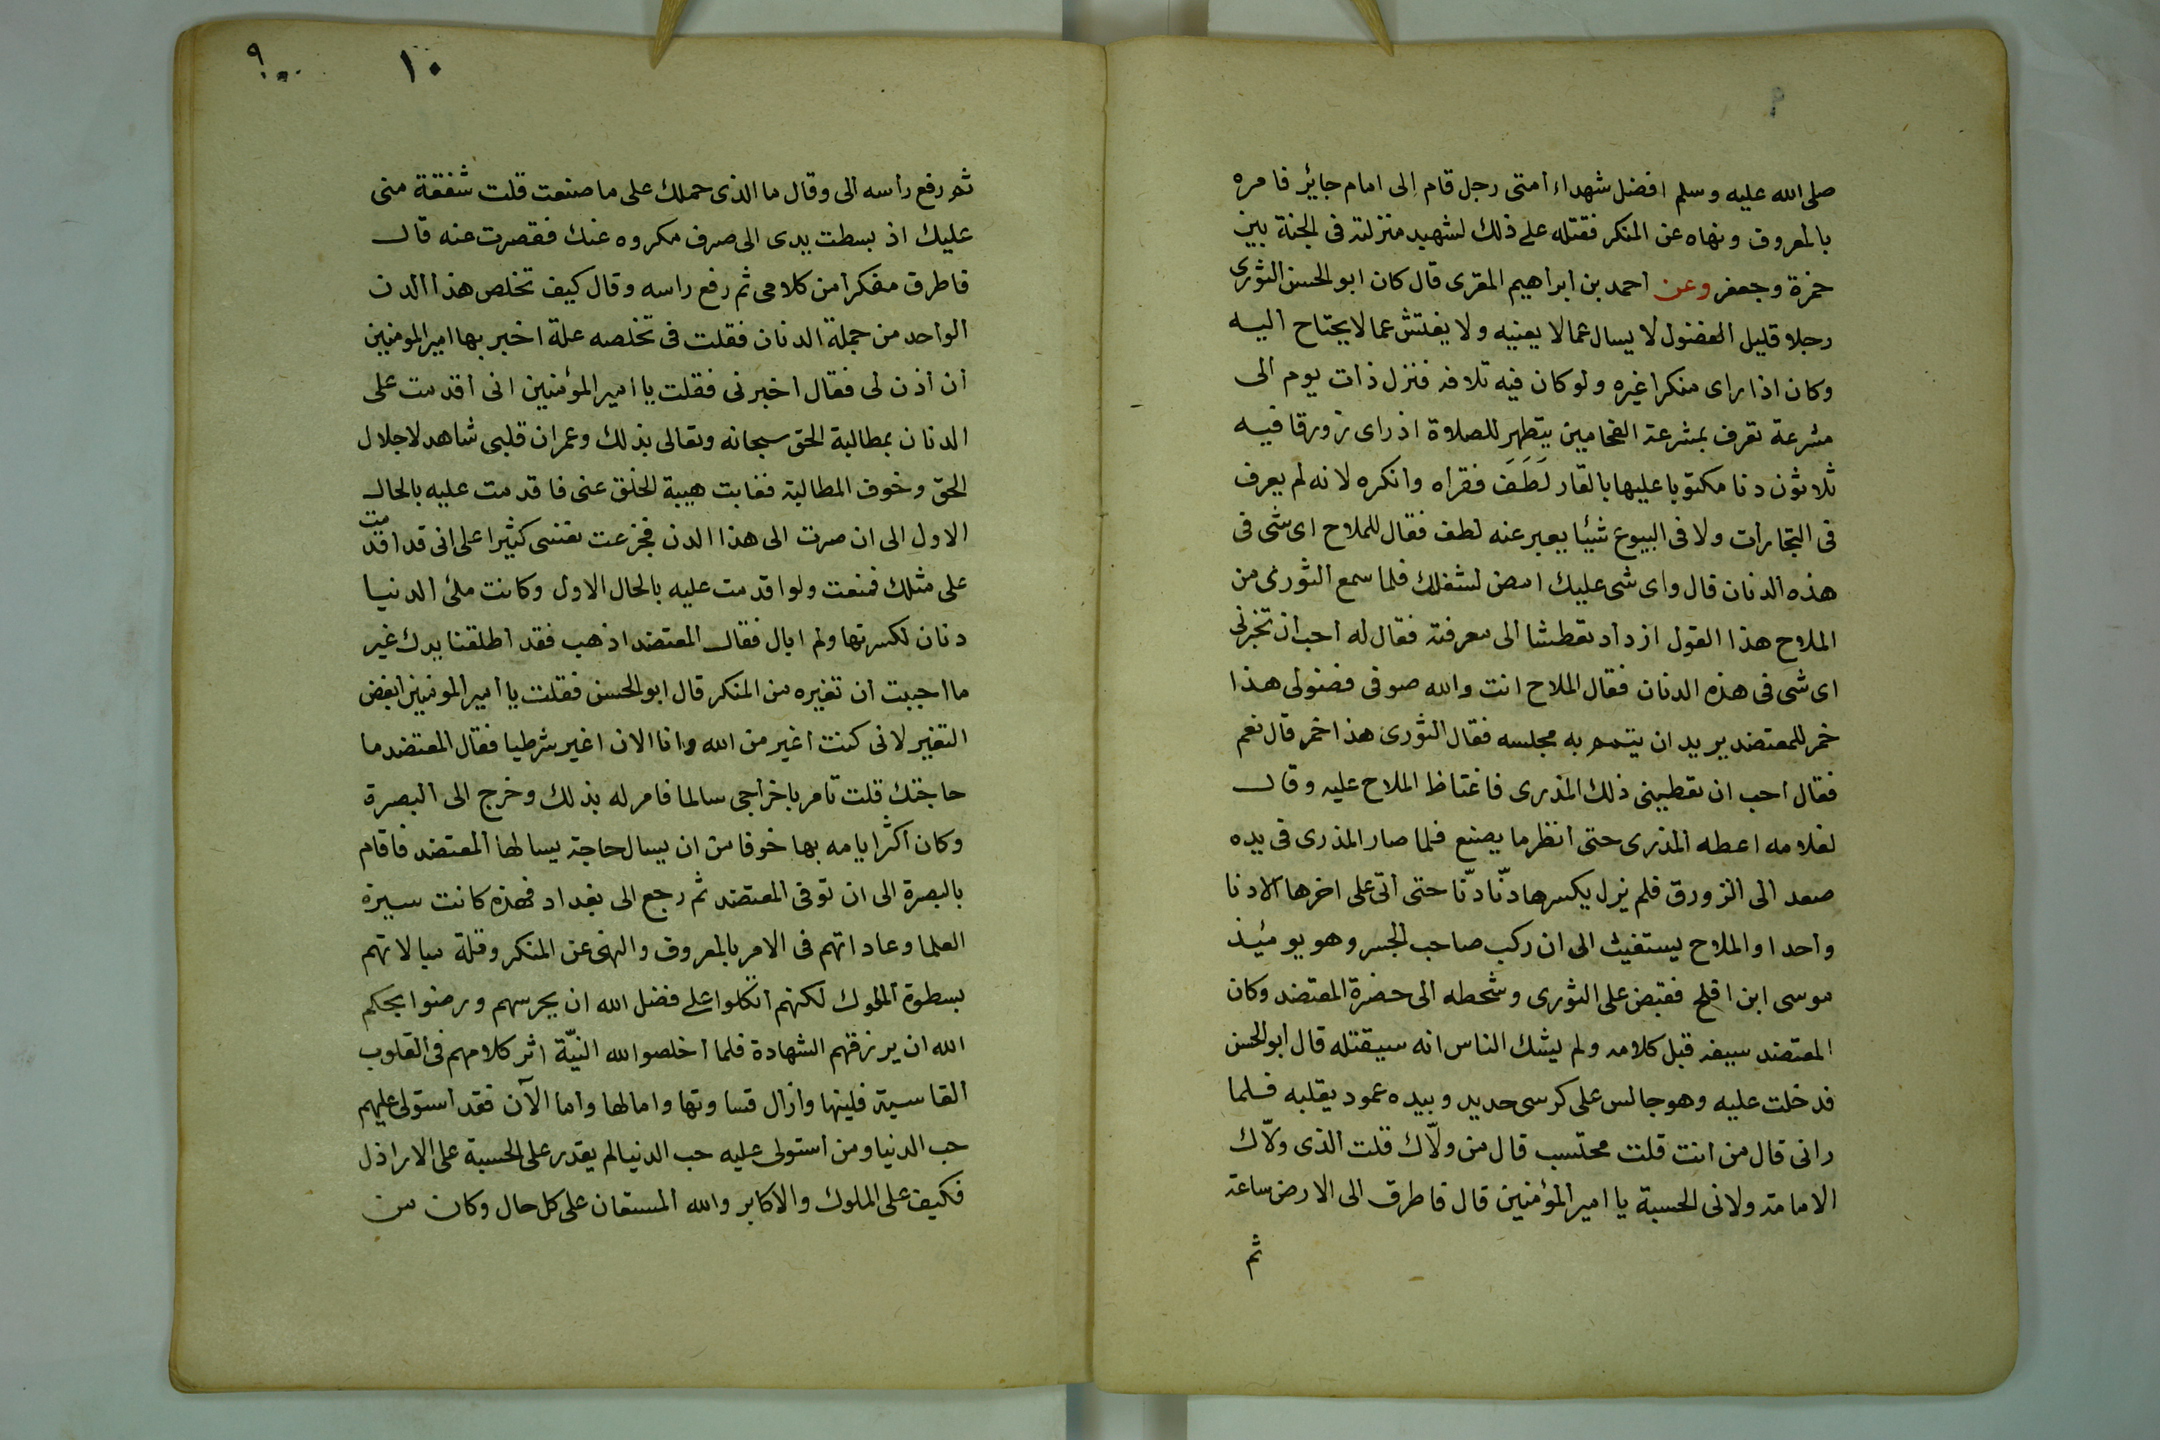 صلى الله عليه وسلم افضل شهداء امتى رجل قام إلى امام جاير فامره
بالمعروف ونهاه عن المنكر فقتله على ذلك لشهيد منزلته فى الجنة بين
حمزة وجعفر وعن احمد بن ابراهيم المقرى قال كان ابو الحسن الثورى
رجلا قليل الفضول لا يسال عما لا يعنيه ولا يفتش عما لا يحتاح اليه
وكان اذا راى منكرا غيره ولو كان فيه تلافه فنزل ذات يوم الى
مشرعة تعرف بمشرعة الفحامين يتطهر للصلاة اذ راى زورقا فيه
ثلاثون دنا مكتوبا عليها بالقار لَطَفَ فقراه وانكره لانه لم يعرف
فى التجارات ولا فى البيوع شيئا يعبر عنه لطف فقال للملاح اى شى فى
هذه الدنان قال واى شى عليك امض لشغلك فلما سمع الثورى من
الملاح هذا القول ازداد تعطشا الى معرفته فقال له احب ان تخبرنى
اى شى فى هذه الدنان فقال الملاح انت والله صوفى فضولى هذا
خمر للمعتضد يريد ان يتمم به مجلسه فقال الثورى هذا خمر قال نعم
فقال احب ان تعطينى ذلك المذرى فاغتاظ الملاح عليه وقال
لغلامه اعطه المذرى حتى انظر ما يصنع فلما صار المذرى فى يده
صعد الى الزورق فلم يزل يكسرها دنّا دنّا حتى اتى على اخرها الا دنا
واحدا والملاح يستغيث الى ان ركب صاحب الجسر وهو يومئيذ
موسى ابن افلح فقبض على الثورى وشحطه الى حضرة المعتضد وكان
المعتضد سيفه قبل كلامه ولم يشك الناس انه سيقتله قال ابو الحسن
فدخلت عليه وهو جالس على كرسى حديد وبيده عمود يقلبه فلما
رانى قال من انت قلت محتسب قال من ولّاك قلت الذى ولّاك
الامامة ولانى الحسبة يا امير المؤمنين قال فاطرق الى الارض ساعة
ثم
٩
١٠
ثم رفع راسه الى وقال ما الذى حملك على ما صنعت قلت شفقة منى
عليك اذ بسطت يدى الى صرف مكروه عنك فقصرت عنه قال
فاطرق مفكرا من كلامى ثم رفع راسه وقال كيف تخلص هذا الدن
الواحد من جملة الدنان فقلت فى تخلصه علة اخبر بها امير المومنين
ان اذن لى فقال اخبرنى فقلت يا امير المؤمنين انى اقدمت على
الدنان بمطالبة الحق سبحانه وتعالى بذلك وعمران قلبى شاهد لاجلال
الحق وخوف المطالبة فغابت هيبة الخلق عنى فاقدمت عليه بالحال
الاول الى ان صرت الى هذا الدن فجزعت نفسى كثيرا على انى قد اقدمت
على مثلك فمنعت ولو اقدمت عليه بالحال الاول وكانت ملئ الدنيا
دنان لكسرتها ولم ابال فقال المعتضد اذهب فقد اطلقنا يدك غير
ما احببت ان تغيره من المنكر قال ابو الحسن فقلت يا امير المومنين ابغض
التغير لانى كنت اغير من الله وانا الان اغير شرطيا فقال المعتضد ما
حاجتك قلت تامر باخراجى سالما فامر له بذلك وخرج الى البصرة
وكان اكثر ايامه بها خوفا من ان يسال حاجة يسالها المعتضد فاقام
بالبصرة الى ان توفى المعتضد ثم رجع الى بغداد فهذه كانت سيرة
العلما وعاداتهم فى الامر بالمعروف والنهى عن المنكر وقلة مبالاتهم
بسطوة الملوك لكنهم اتكلوا على فضل الله ان يحرسهم ورضوا بحكم
الله ان يرزقهم الشهادة فلما اخلصوا لله النيّة اثر كلامهم فى القلوب
القاسية فلينها وازال قساوتها وامالها واما الآن فقد استولى عليهم
حب الدنيا ومن استولى عليه حب الدنيا لم يقدر على الحسبة على الاراذل
فكيف على الملوك والاكابر والله المستعان على كل حال وكان من